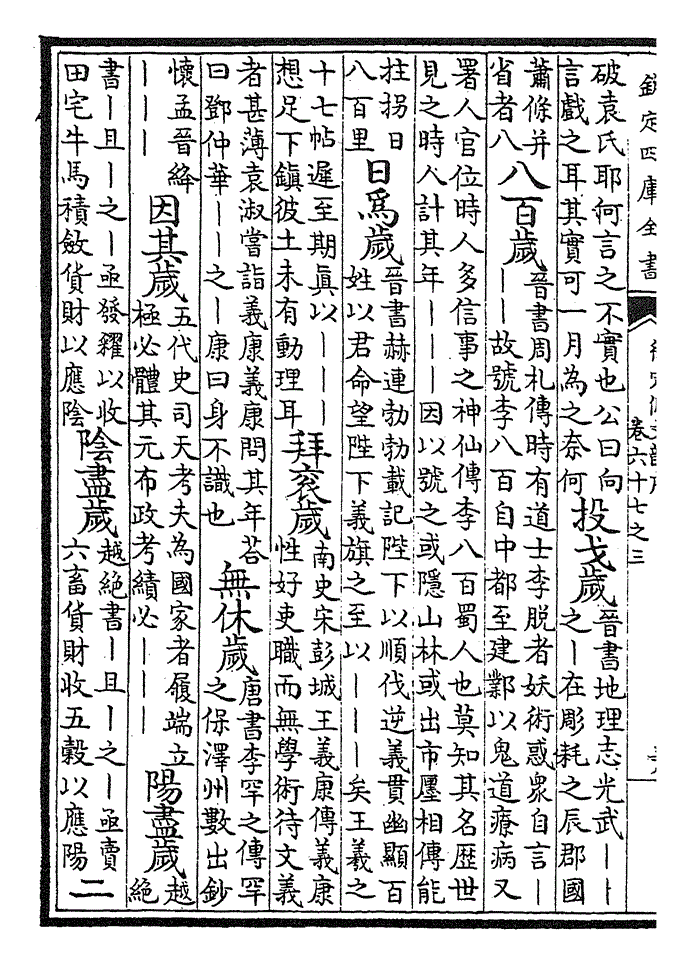 欽定四庫全書
御定佩文韻府
卷六十七之三
破袁氏耶何言之不實也公曰向
言戲之耳其實可一月為之奈何
投戈歲
晉書地理志光武丨丨
之丨在彫耗之辰郡國
蕭條并
省者八
八百歲
晉書周札傳時有道士李脫者妖術惑衆自言丨
丨丨故號李八百自中都至建鄴以鬼道療病又
署人官位時人多信事之神仙傳李八百蜀人也莫知其名歴世
見之時人計其年丨丨丨因以號之或隱山林或出市廛相傳能
拄拐日
八百里
日為歲
晉書赫連勃勃載記陛下以順伐逆義貫幽顯百
姓以君命望陛下義旗之至以丨丨丨矣王羲之
十七帖遲至期真以丨丨丨
想足下鎮彼土未有動理耳
拜衮歲
南史宋彭城王義康傳義康
性好吏職而無學術待文義
者甚薄袁淑嘗詣義康義康問其年荅
曰鄧仲華丨丨之丨康曰身不識也
無休歲
唐書李罕之傳罕
之保澤州數出鈔
懷孟晉絳
丨丨丨
因其歲
五代史司天考夫為國家者履端立
極必體其元布政考績必丨丨丨
陽盡歲
越
絕
書丨且丨之丨亟發糴以收
田宅牛馬積斂貨財以應陰
陰盡歲
越絕書丨且丨之丨亟賣
六畜貨財收五穀以應陽
二